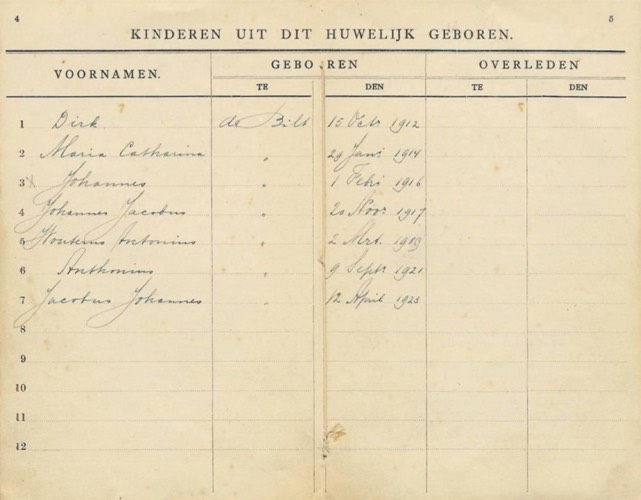 4 5
KINDEREN UIT DIT HUWELIJK GEBOREN.
VOORNAMEN. GEBOREN OVERLEDEN
TE DEN TE DEN
1 Dirk de Bilt 15 Octr 1912
2 Maria Catharina " 29 Jani 1914
3 Johannes " 1 Febri 1916
4 Johannes Jacobus " 20 Novr 1917
5 Wouterus Antonius " 2 Mrt.
6 Anthonius " 9 Septr 1921
7 Jacobus Johannes " 12 April 1923
8
9
10
11
12